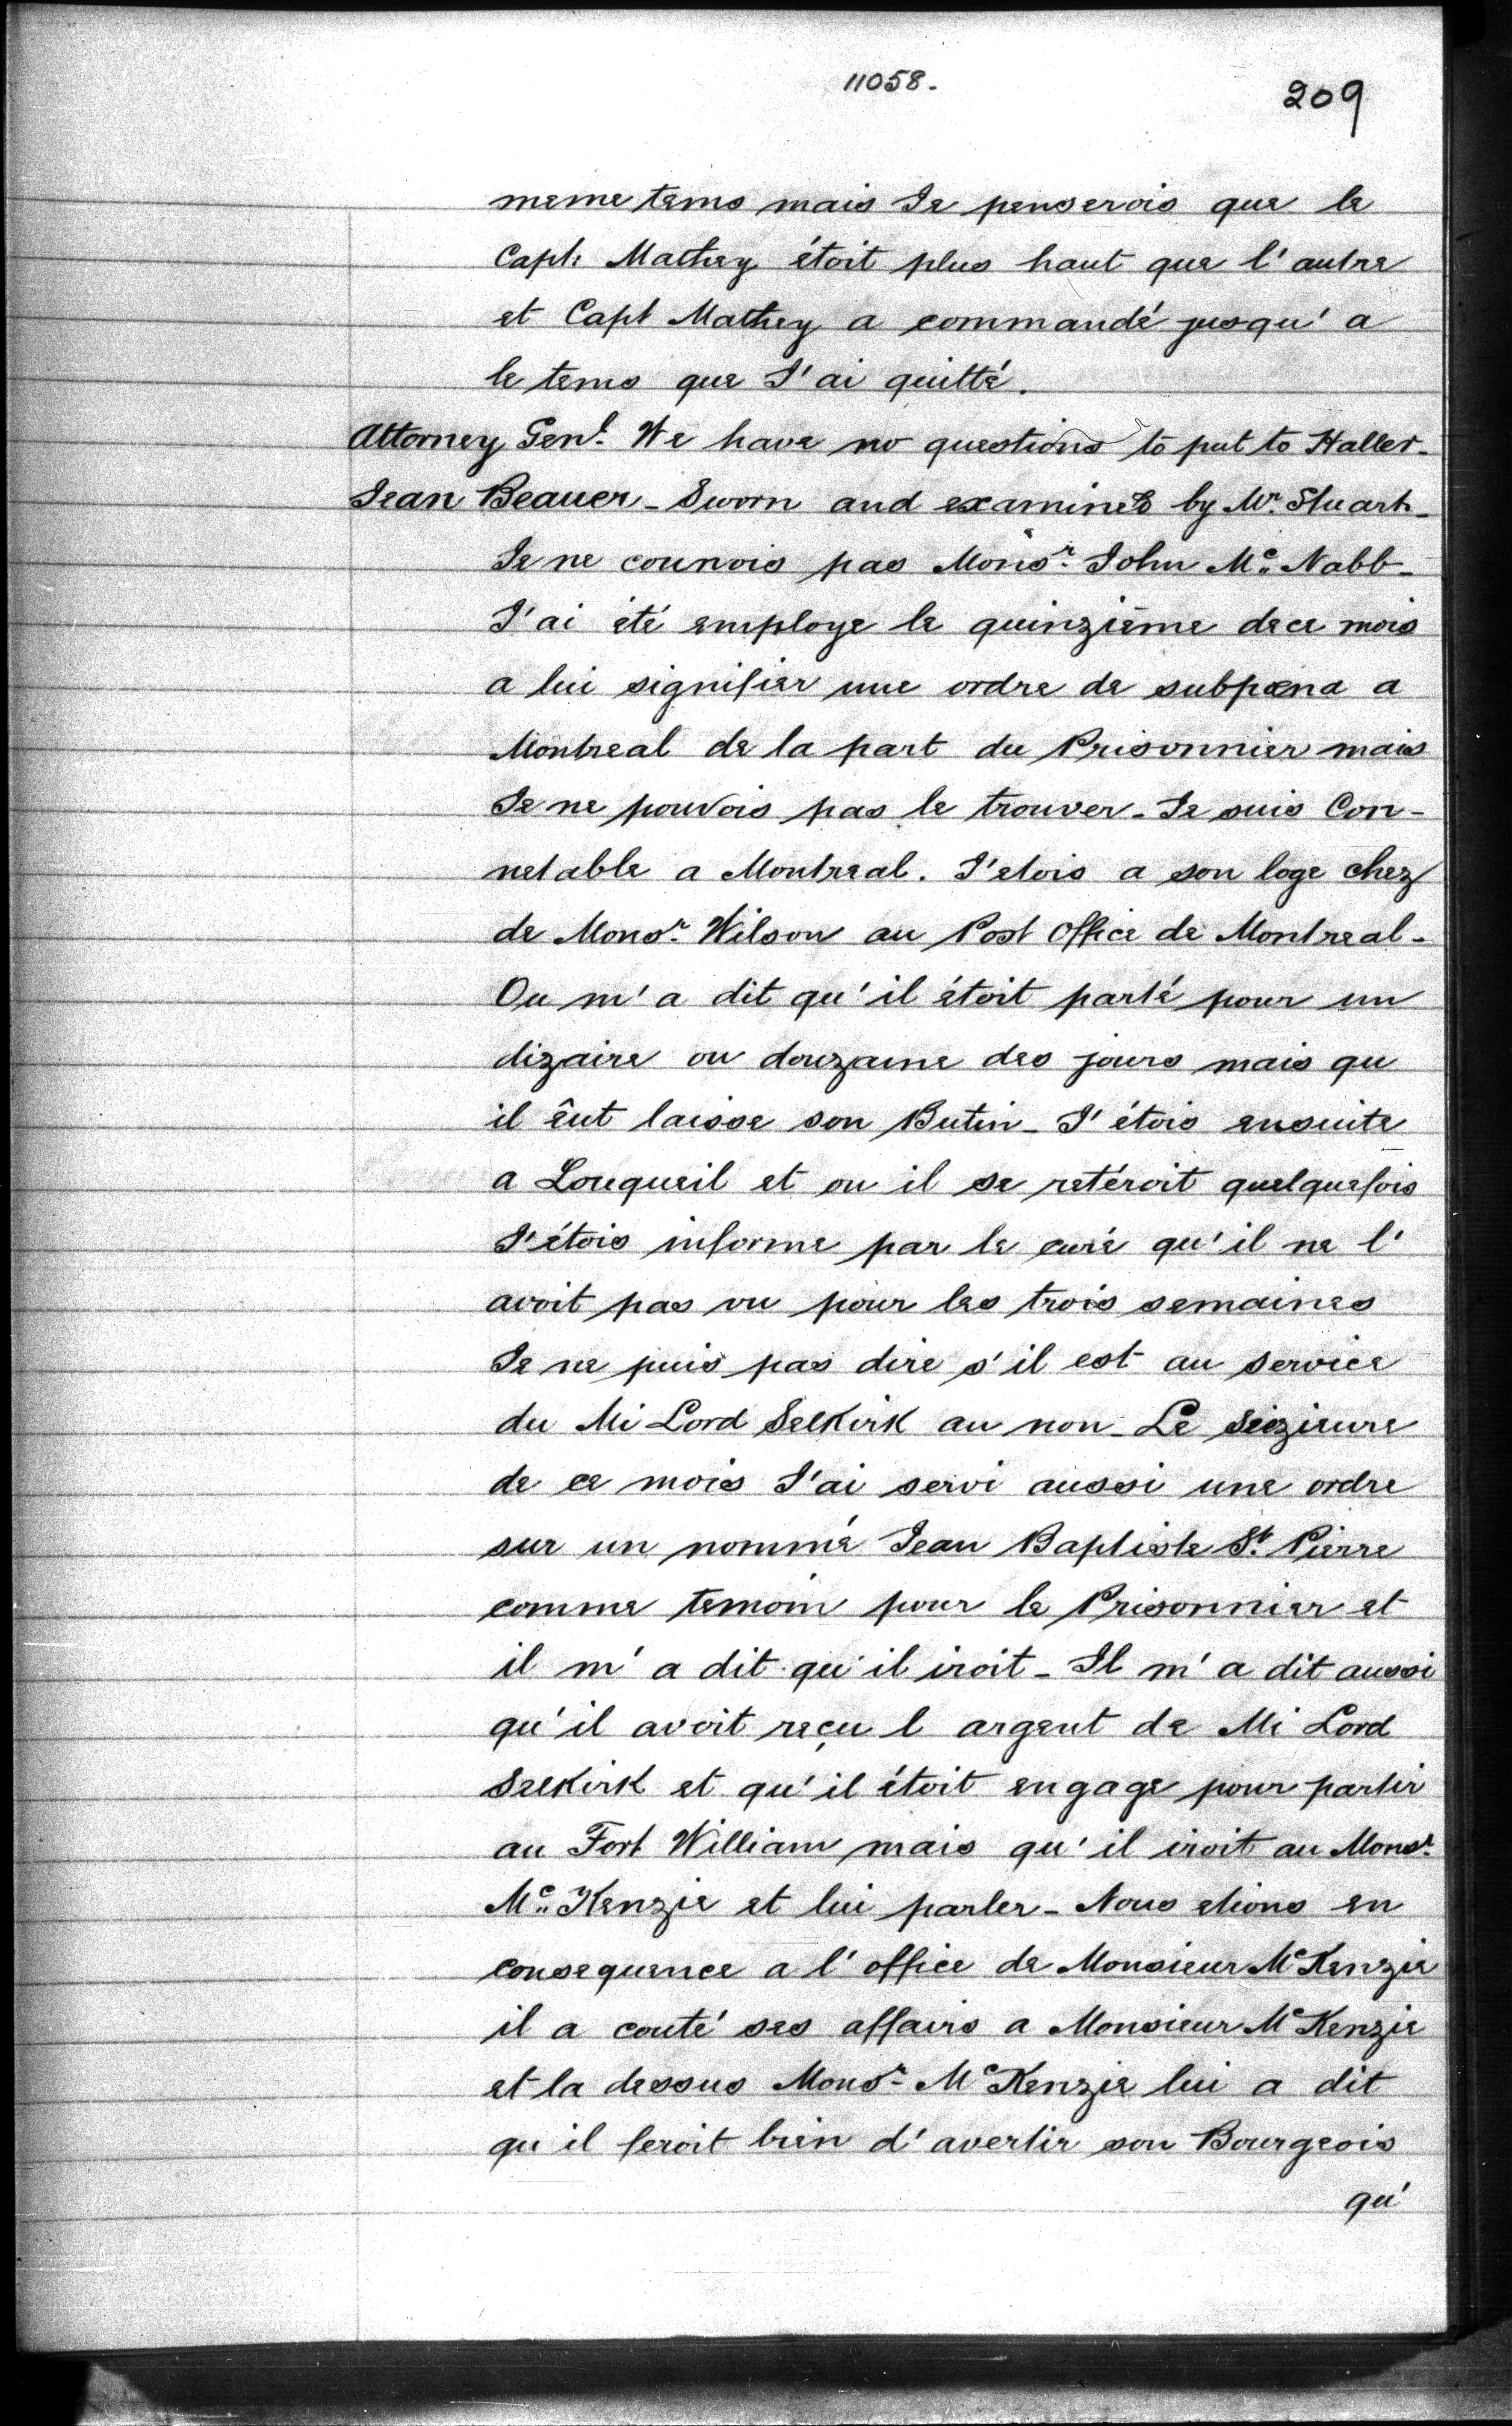 11058.
209
meme tems mais Je penserois que le
Capt: Mathey étoit plus haut que l'autre
et Capt Mathey a commandé jusqu'a
le tems que J'ai quitté.
Attorney Genl. We have no questions to put to Haller-
Jean Beauer - Sworn and examined by Mr. Stuart-
Je ne counois pas Monsr. John Mc. Nabb-
J'ai été employe le quinziême dece mois
a lui signifier une ordre de subpœna a
Montreal de la part du Prisonnier mais
Je ne pouvois pas le trouver - Je suis Con-
netable a Montreal. J'etois a son loge chez
de Monsr. Wilson au Post Office de Montreal-
Ou m'a dit qu'il étoit parté pour un
dizaire ou douzaine des jours mais qu
il êut laisse son Butin - J'étois ensuite
a Louqueil et ou il se retéroit quelquefois
J'étois informe par le curé qu'il ne l'
avoit pas vu pour les trois semaines
Je ne puis pas dire s'il est au service
du Mi Lord Selkirk au non - Le Seizieure
de ce mois J'ai servi aussi une ordre
sur un nommé Jean Baptiste St. Pierre
comme temoin pour le Prisonnier et
il m'a dit qu'il iroit - Il m'a dit aussi
qu'il avoit reçu l argent de Mi Lord
Selkirk et qu'il étoit engage pour partir
au Fort William mais qu'il iroit au Monsr.
Mc. Kenzie et lui parler - Nous etions en
consequence a l'office de Monsieur McKenzie
il a couté ses affairs a Monsieur McKenzie
et la dessus Monsr. McKenzie lui a dit
qu il feroit bien d'avertir son Bourgeois
qu'